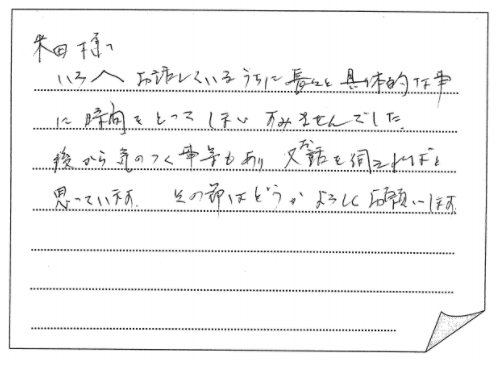 米田様へ
いろいろお話しているうちに長々と具体的な事
に時間をとってしまいすみませんでした。
後から気のつく事等もあり又お話を伺えればと
思っています。その節はどうかよろしくお願いします